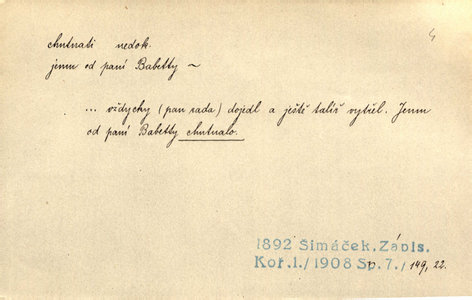 4
chutnati nedok.
jemu od paní Babetty ~
... vždycky (pan rada) dojedl a ještě talíř vytřel. Jemu
od paní Babetty chutnalo.
1892 Šimáček, Zápis.
Koř.1./1908 Sp.7./149,22.